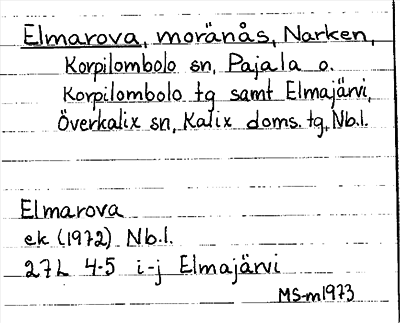 Elmarova, moränås, Narken,
Korpilombolo sn, Pajala o.
Korpilombolo tg samt Elmajärvi,
Överkalix sn, Kalix doms. tg, Nb.l.
Elmarova
ek (1972) Nb.l.
27L 4-5 i-j Elmajärvi
MS-m1973